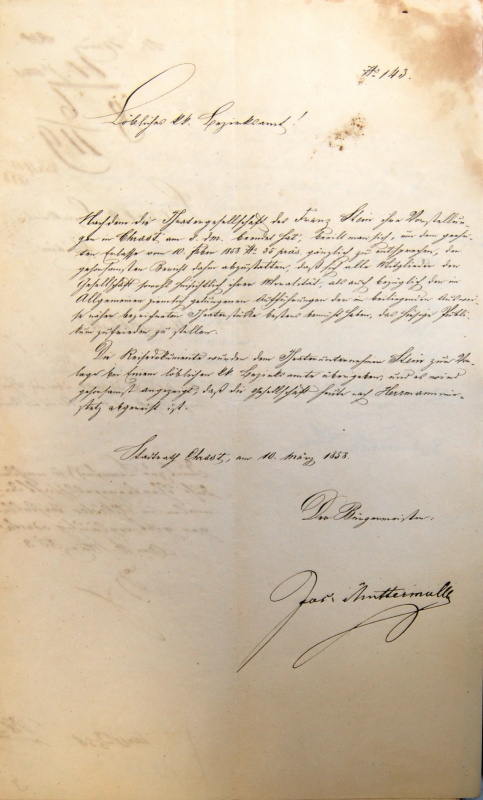 No 143.
Löbliches kk. Bezirksamt!
Nachdem die Theatergesellschaft des Franz Stein ihre Vorstellun-
gen in Chrast, am 8. dm. beendet hat, beeilt man sich, um dem geehr-
ten Erlasse vom 10. Feber 1858 No 35 präs. gänzlich zu entsprechen, den
gehorsamsten Bericht dahin abzustatten, daß sich alle Mitglieder der
Gesellschaft sowohl hinsichtlich ihrer Moralität, als auch bezüglich der im
Allgemeinen ziemlich gelungenen Aufführungen der im beiliegenden Auswei-
se näher bezeichneten Theaterstücke bestens bemüht haben, das hiesige Publi-
kum zufrieden zu stellen.
Die Reisedokumente wurden dem Theaterunternehmer Stein zur Vor-
lage bei Einem löblichen kk Bezirksamte übergeben, und es wird
gehorsamst angezeigt, daß die Gesellschaft heute nach Herrmanmie-
stetz abgereist ist.
Stadtrath Chrast, am 10. März 1858.
Der Bürgermeister.
Jos.